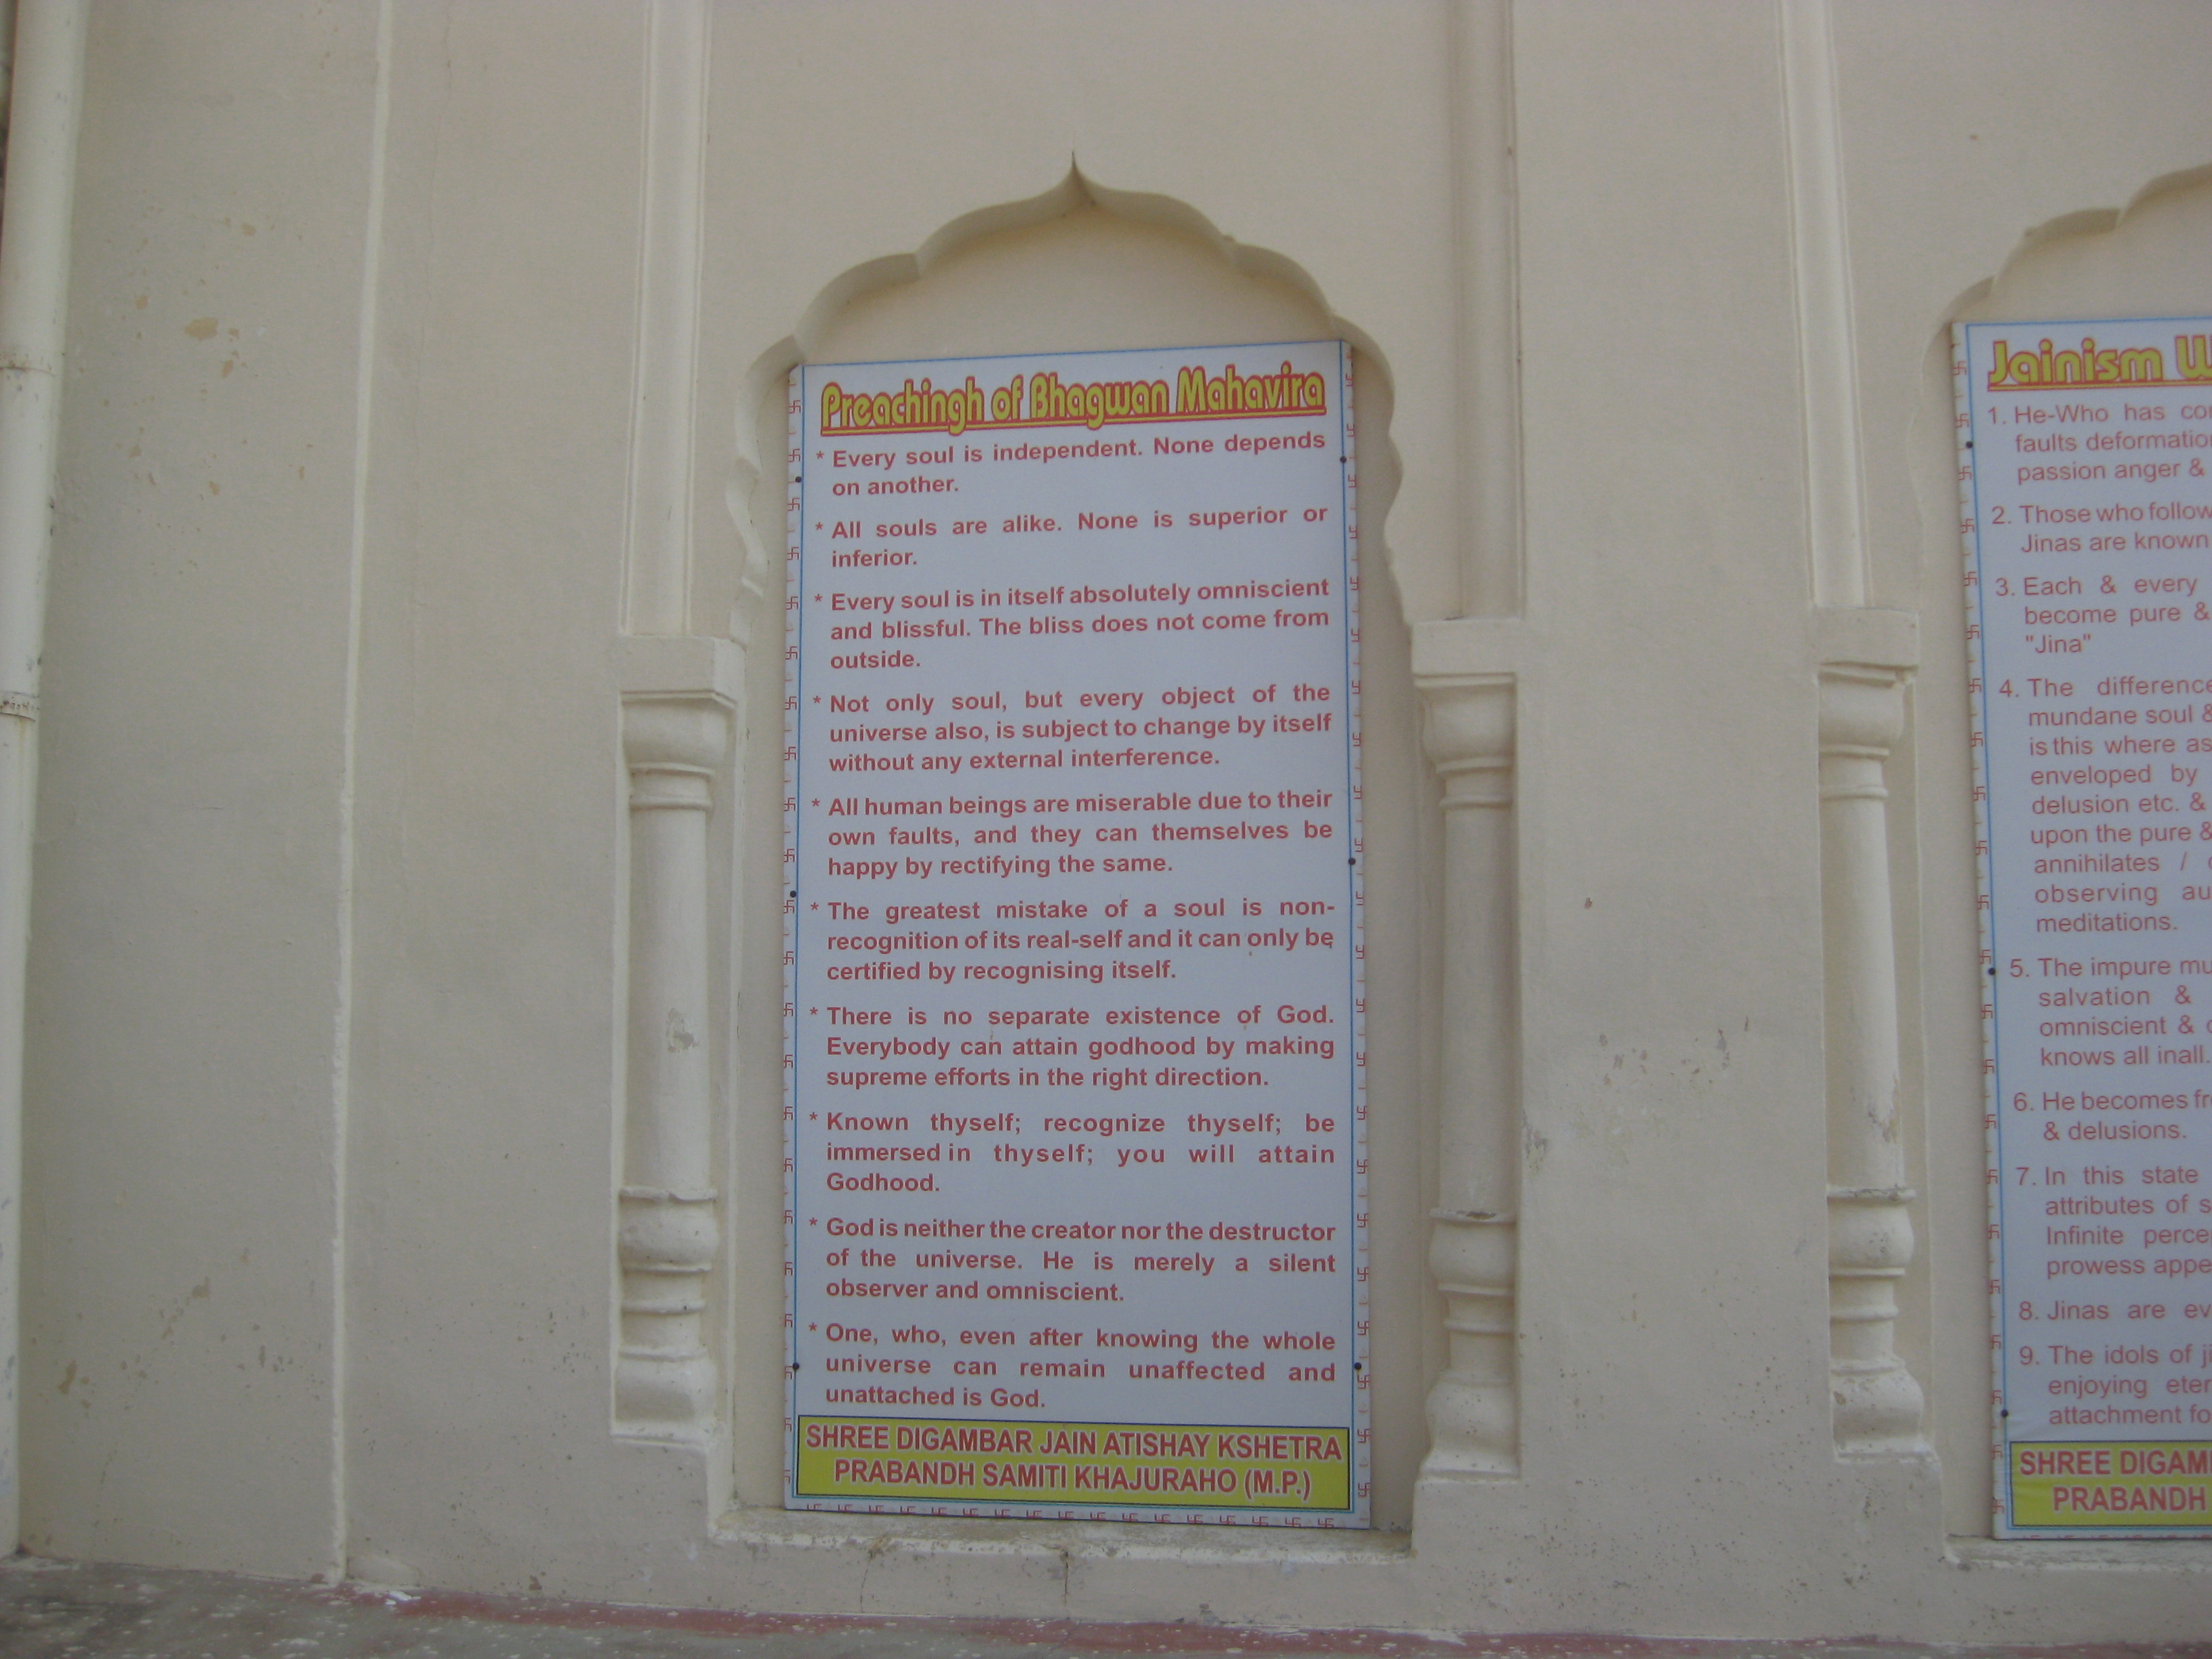 Preachingh of Bhagwan Mahavira
* Every soul is independent. None depends
on another.
* All souls are alike. None is superior or
inferior.
* Every soul is in itself absolutely omniscient
and blissful. The bliss does not come from
outside.
* Not only soul, but every object of the
universe also, is subject to change by itself
without any external interference.
* All human beings are miserable due to their
own faults, and they can themselves be
happy by rectifying the same.
* The greatest mistake of a soul is non-
recognition of its real-self and it can only be
certified by recognising itself.
* There is no separate existence of God.
Everybody can attain godhood by making
supreme efforts in the right direction.
* Known thyself; recognize thyself; be
immersed in thyself; you will attain
Godhood.
* God is neither the creator nor the destructor
of the universe. He is merely a silent
observer and omniscient.
* One, who, even after knowing the whole
universe can remain unaffected and
unattached is God.
SHREE DIGAMBAR JAIN ATISHAY KSHETRA
PRABANDH SAMITI KHAJURAHO (M.P.)
Jainism
1. He-Who has
faults
passion anger &
2. Those who follow
Jinas are known
3. Each & every
become pure &
"Jina"
4. The difference
mundane soul &
is this where as
enveloped by
delusion etc. &
upon the pure &
annihilates /
observing
meditations.
5. The impure
salvation &
omniscient &
knows all inall.
6. He becomes
& delusions.
7. In this state
attributes of
Infinite
prowess
8. Jinas are
9. The idols of
enjoying
attachment
SHREE
PRABANDH